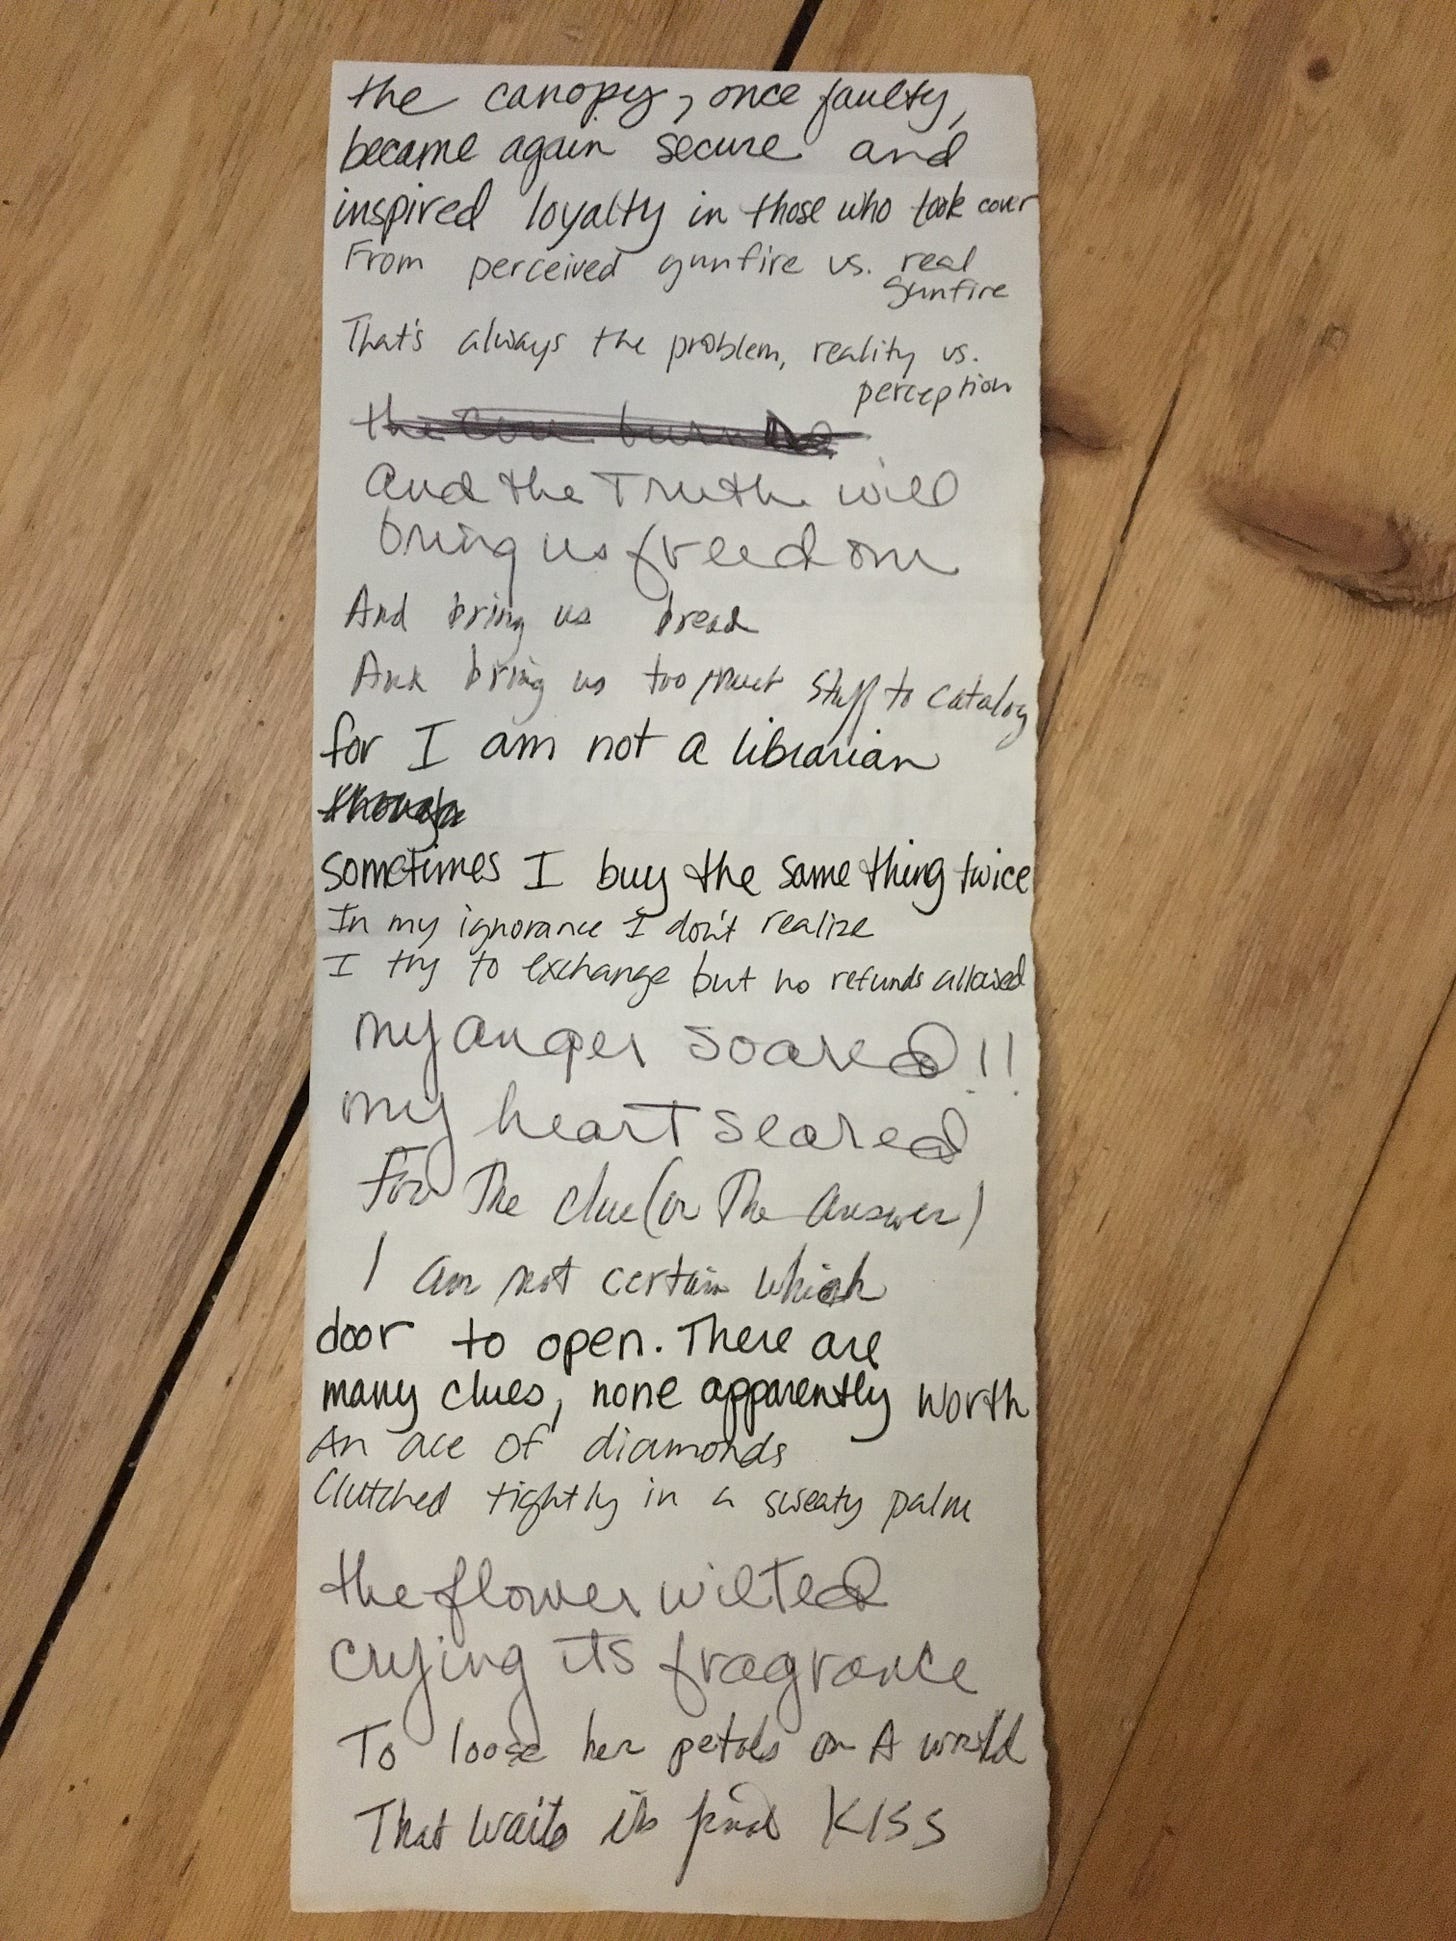 the canopy, once faulty,
became again secure and
inspired loyalty in those who took cover
From perceived gunfire vs. real
gunfire
That's always the problem, reality vs.
perception
and the Truth will
bring us freedom
And bring us bread
And bring us too much stuff to catalog
for I am not a librarian
though
sometimes I buy the same thing twice
In my ignorance I don't realize
I try to exchange but no refunds allowed
my anger soared!!
my heart seared
For The clue (or The answer)
I am not certain which
door to open. There are
many clues, none apparently worth
An ace of diamonds
Clutched tightly in a sweaty palm
the flower wilted
crying its fragrance
To loose her petals on A world
That waits its final KISS